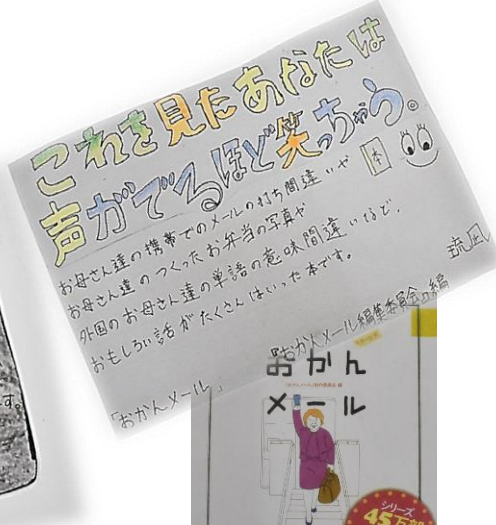 これを見たあなたは
声がでるほど笑っちゃう。
本
お母さん達の携帯でのメールの打ち間違いや
お母さん達のつくったお弁当の写真や
外国のお母さん達の単語の意味間違いなど、
おもしろい話がたくさんはいった本です。
琉凪
「おかんメール」
『おかんメール編集委員会』編
おかん
メール
シリーズ
45万部
す。